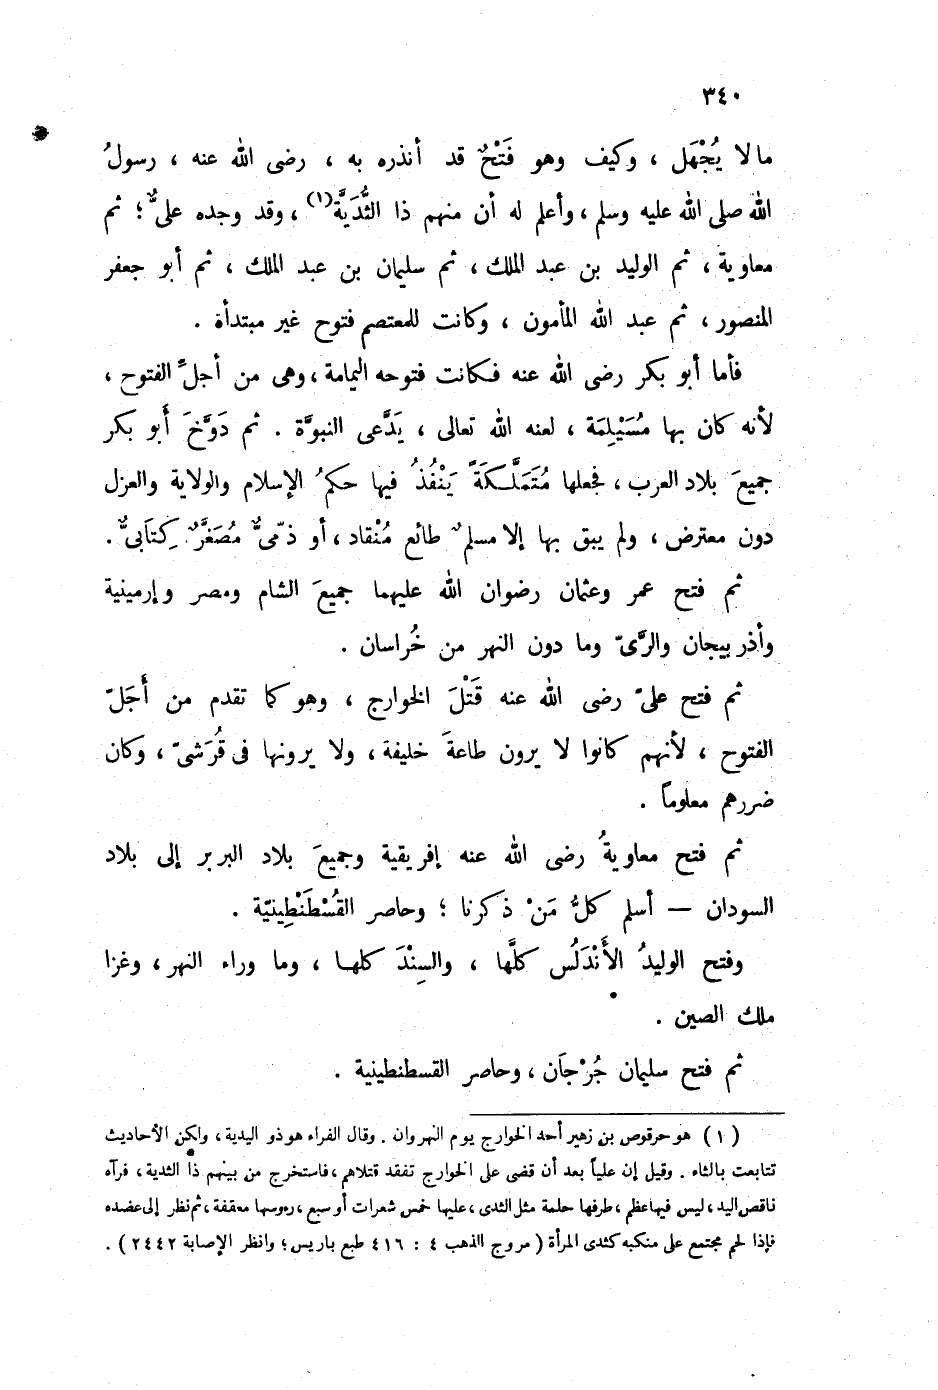 ٣٤٠
ما لا يُجْهَل ، وكيف وهو فَتْحٌ قد أنذره به ، رضى الله عنه ، رسولُ
الله صلى الله عليه وسلم ، وأعلم له أن منهم ذا الثُّدَيَّة(١) ، وقد وجده علىٌّ ؛ ثم
معاوية ، ثم الوليد بن عبد الملك ، ثم سليمان بن عبد الملك ، ثم أبو جعفر
المنصور ، ثم عبد الله المأمون ، وكانت للمعتصم فتوح غير مبتدأة .
فأما أبو بكر رضى الله عنه فكانت فتوحه اليمامة ، وهى من أجلِّ الفتوح ،
لأنه كان بها مُسَيْلِمَة ، لعنه الله تعالى ، يَدَّعى النبوَّة . ثم دَوَّخَ أبو بكر
جميعَ بلاد العرب ، فجعلها مُتَمَلَّكَةً يَنْفُذُ فيها حكمُ الإسلام والولاية والعزل
دون معترض ، ولم يبق بها إلا مسلمٌ طائع مُنْقاد ، أو ذمّىٌّ مُصَغَّرٌ كِتَابىٌّ .
ثم فتح عمر وعثمان رضوان الله عليهما جميعَ الشام ومصر وإرمينية
وأذربيجان والرَّىّ وما دون النهر من خُراسان .
ثم فتح علىّ رضى الله عنه قَتْلَ الخوارج ، وهو كما تقدم من أَجَلّ
الفتوح ، لأنهم كانوا لا يرون طاعةَ خليفة ، ولا يرونها فى قُرَشىّ ، وكان
ضررهم معلوماً .
ثم فتح معاويةُ رضى الله عنه إفريقية وجميعَ بلاد البربر إلى بلاد
السودان — أسلم كلُّ مَنْ ذكرنا ؛ وحاصر القُسْطَنْطِينيّة .
وفتح الوليدُ الأَنْدَلُس كلَّها ، والسِنْدَ كلها ، وما وراء النهر ، وغزا
ملك الصين .
ثم فتح سليمان جُرْجاَن ، وحاصر القسطنطينية .
(١) هو حرقوص بن زهير أحد الخوارج يوم النهروان . وقال الفراء هو ذو اليدية ، ولكن الأحاديث
تتابعت بالثاء . وقيل إن علياً بعد أن قضى على الخوارج تفقد قتلاهم ، فاستخرج من بينهم ذا الثدية ، فرآه
ناقص اليد ، ليس فيها عظم ، طرفها حلمة مثل الثدى ، عليها خمس شعرات أو سبع ، رءوسها معقفة ، ثم نظر إلى عضده
فإذا لحم مجتمع على منكبه كثدى المرأة ( مروج الذهب ٤ : ٤١٦ طبع باريس ؛ وانظر الإصابة ٢٤٤٢ ) .